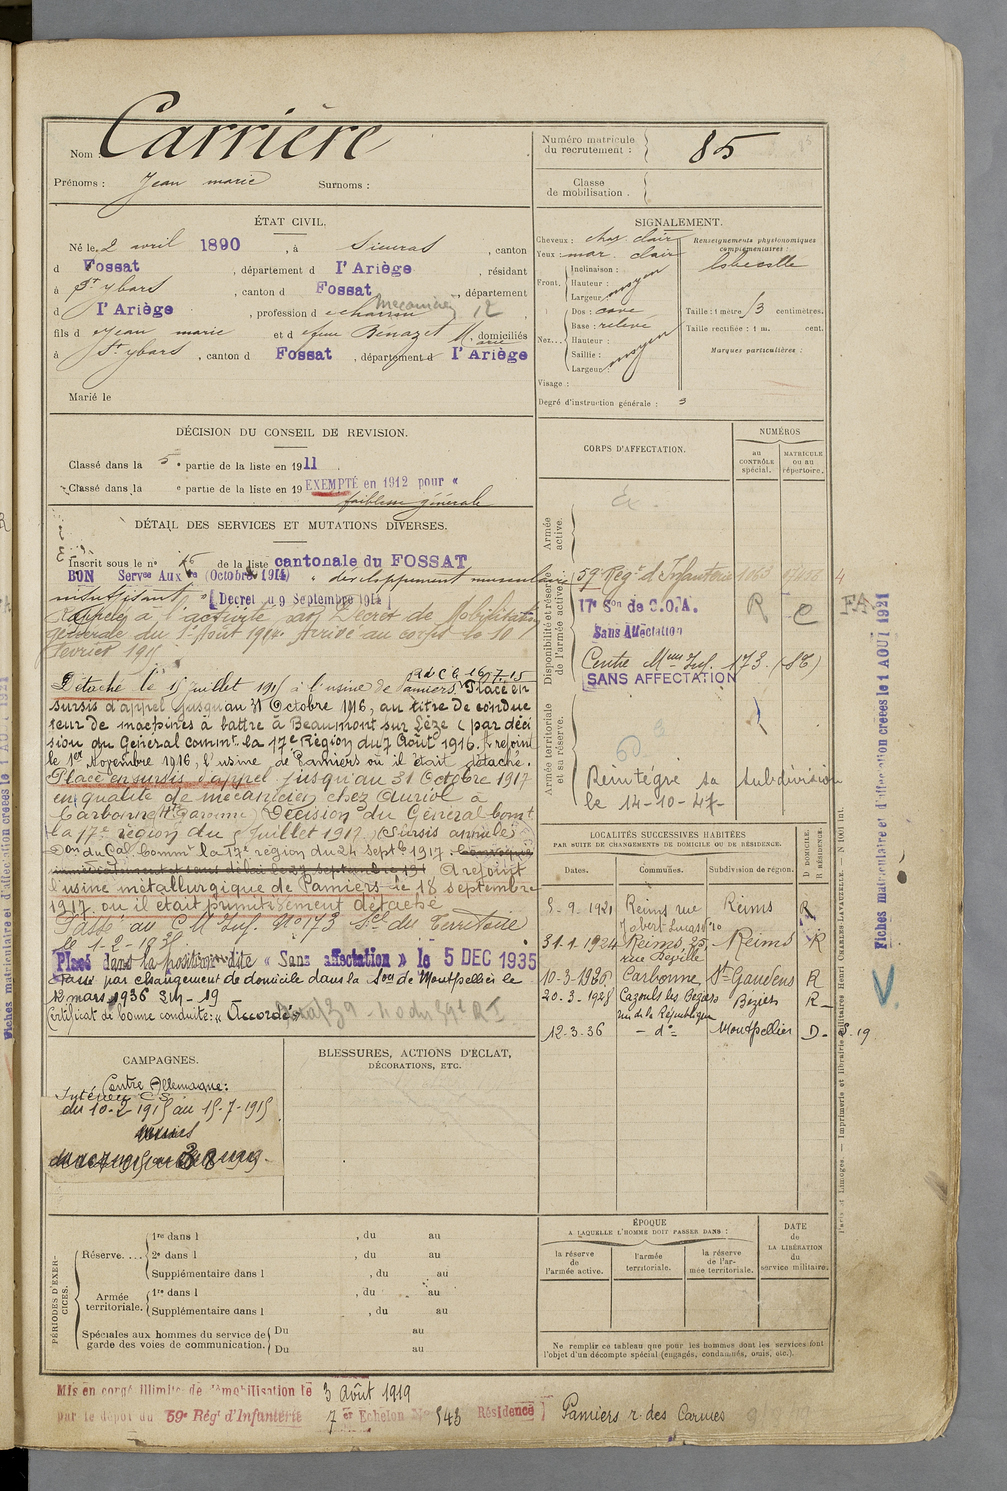 Nom : Carrière
Prénoms : Jean marie Surnoms :
Numéro matricule du recrutement : 85
Classe de mobilisation .
ÉTAT CIVIL.
Né le 2 avril 1890, à Sieuras, canton
d Fossat, département d l'Ariège, résidant
à St ybars, canton d Fossat, département
d l'Ariège, profession d mécanicien 12
fils d Jean marie et d feue Bénazet Marie, domiciliés
à St ybars, canton d Fossat, département d l'Ariège
Marié le
SIGNALEMENT.
Cheveux : cha. clair
Yeux : mar. clair
Front. Inclinaison :
Hauteur : moyen
Largeur
Nez... Dos : cave
Base : relevé
Hauteur :
Saillie : moyen
Largeur :
Visage :
Degré d'instruction générale : 3
Renseignements physionomiques complémentaires :
Taille : 1 mètre 73 centimètres.
Taille rectifiée : 1 m. cent.
Marques particulières :
DÉCISION DU CONSEIL DE REVISION.
Classé dans la 5e partie de la liste en 1911
Classé dans la e partie de la liste en 19 EXEMPTÉ en 1912 pour «
faiblesse générale
DÉTAIL DES SERVICES ET MUTATIONS DIVERSES.
Inscrit sous le n° 16 de la liste cantonale du FOSSAT
BON Servce Auxre (Octobre 1914) « développement musculaire
insuffisant » [Décret du 9 Septembre 1914]
Rappelé à l'activité par Décret de Mobilisation
générale du 1er Août 1914. Arrivé au corps le 10
Février 1915
Détaché le 15 Juillet 1915 à l'usine de Pamiers. Placé en
sursis d'appel jusqu'au 31 Octobre 1916, au titre de conduc
teur de machines à battre à Beaumont sur Lèze (par déci
sion du Général commt la 17e Région du 7 Août 1916. A rejoint
le 1er Novembre 1916, l'usine de Pamiers où il était détaché.
Placé en sursis d'appel jusqu'au 31 Octobre 1917
en qualité de mécanicien chez Auriol à
Carbonne (Hte Garonne) Décision du Général Comt
la 17e région du Juillet 1917 (Sursis annulé)
Don du Gal Commt la 17e région du 24 Septbre 1917. Convoqué
immédiatement et sans délai le 27 septembre 1917 A rejoint
l'usine métallurgique de Pamiers le 18 septembre
1917 où il était primitivement détaché
Passé au C M Inf. N° 173 Son du Territoire
le 1-2-1935
Placé dans la position dite « Sans affectation » le 5 DEC 1935
Passé par changement de domicile dans la Son de Montpellier le
12 mars 1936
Certificat de bonne conduite : « Accordé »
CORPS D'AFFECTATION.
NUMÉROS
AU CONTRÔLE spécial.
MATRICULE ou au répertoire.
Armée active.
Disponibilité et réserve de l'armée active.
59e Régt d'Infanterie
17e Son de C.O.A. R C
Sans Affectation
Centre Mque Inf. 173 (SE)
SANS AFFECTATION
Armée territoriale et sa réserve.
Réintégré sa subdivision
le 14-10-47-
LOCALITÉS SUCCESSIVES HABITÉES
PAR SUITE DE CHANGEMENTS DE DOMICILE OU DE RÉSIDENCE.
Dates. Communes. Subdivision de région. D DOMICILE. R RÉSIDENCE.
8-9-1921 Reims rue Reims R
31-1-1924 Reims, 25, rue Reims R
10-3-1926 Carbonne St Gaudens R
20-3-1928 Cazouls les Beziers rue de la République Béziers R
12-3-36 - do - Montpellier D - S. 19
CAMPAGNES.
Contre Allemagne :
Intérieur C.S.
du 10-2-1915 au 15-7-1915
BLESSURES, ACTIONS D'ÉCLAT, DÉCORATIONS, ETC.
PÉRIODES D'EXERCICES.
Réserve.... 1re dans l , du au
2e dans l , du au
Supplémentaire dans l , du au
Armée territoriale. 1re dans l , du au
Supplémentaire dans l , du au
Spéciales aux hommes du service de garde des voies de communication. Du au
Du au
ÉPOQUE
A LAQUELLE L'HOMME DOIT PASSER DANS :
la réserve de l'armée active.
l'armée territoriale.
la réserve de l'armée territoriale.
DATE DE LA LIBÉRATION du service militaire.
Ne remplir ce tableau que pour les hommes dont les services font
l'objet d'un décompte spécial (engagés, condamnés, omis, etc.).
Mis en congé illimité de démobilisation le 3 Août 1919
par le dépôt du 59e Régt d'Infanterie 7er Echelon N° 543 Résidence Pamiers r. des Carmes
Paris et Limoges. — Imprimerie et librairie militaires Henri CHARLES-LAVAUZELLE.
Fiches matriculaire et d'affectation créées le 1 AOUT 1921